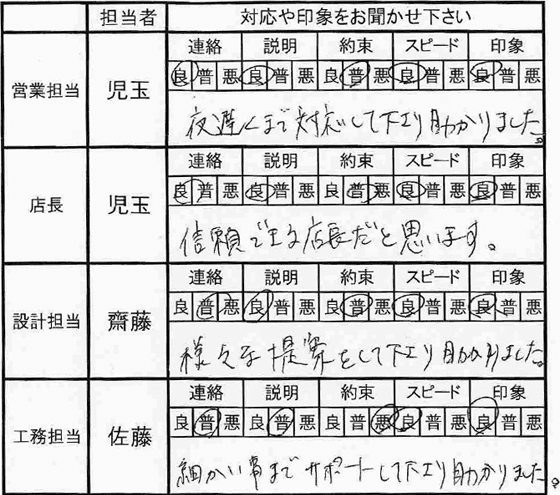 担当者 対応や印象をお聞かせ下さい
営業担当 児玉
連絡 説明 約束 スピード 印象
良 普 悪 良 普 悪 良 普 悪 良 普 悪 良 普 悪
夜遅くまで対応して下さり助かりました。
店長 児玉
連絡 説明 約束 スピード 印象
良 普 悪 良 普 悪 良 普 悪 良 普 悪 良 普 悪
信頼できる店長だと思います。
設計担当 齋藤
連絡 説明 約束 スピード 印象
良 普 悪 良 普 悪 良 普 悪 良 普 悪 良 普 悪
様々な提案をして下さり助かりました。
工務担当 佐藤
連絡 説明 約束 スピード 印象
良 普 悪 良 普 悪 良 普 悪 良 普 悪 良 普 悪
細かい事までサポートして下さり助かりました。